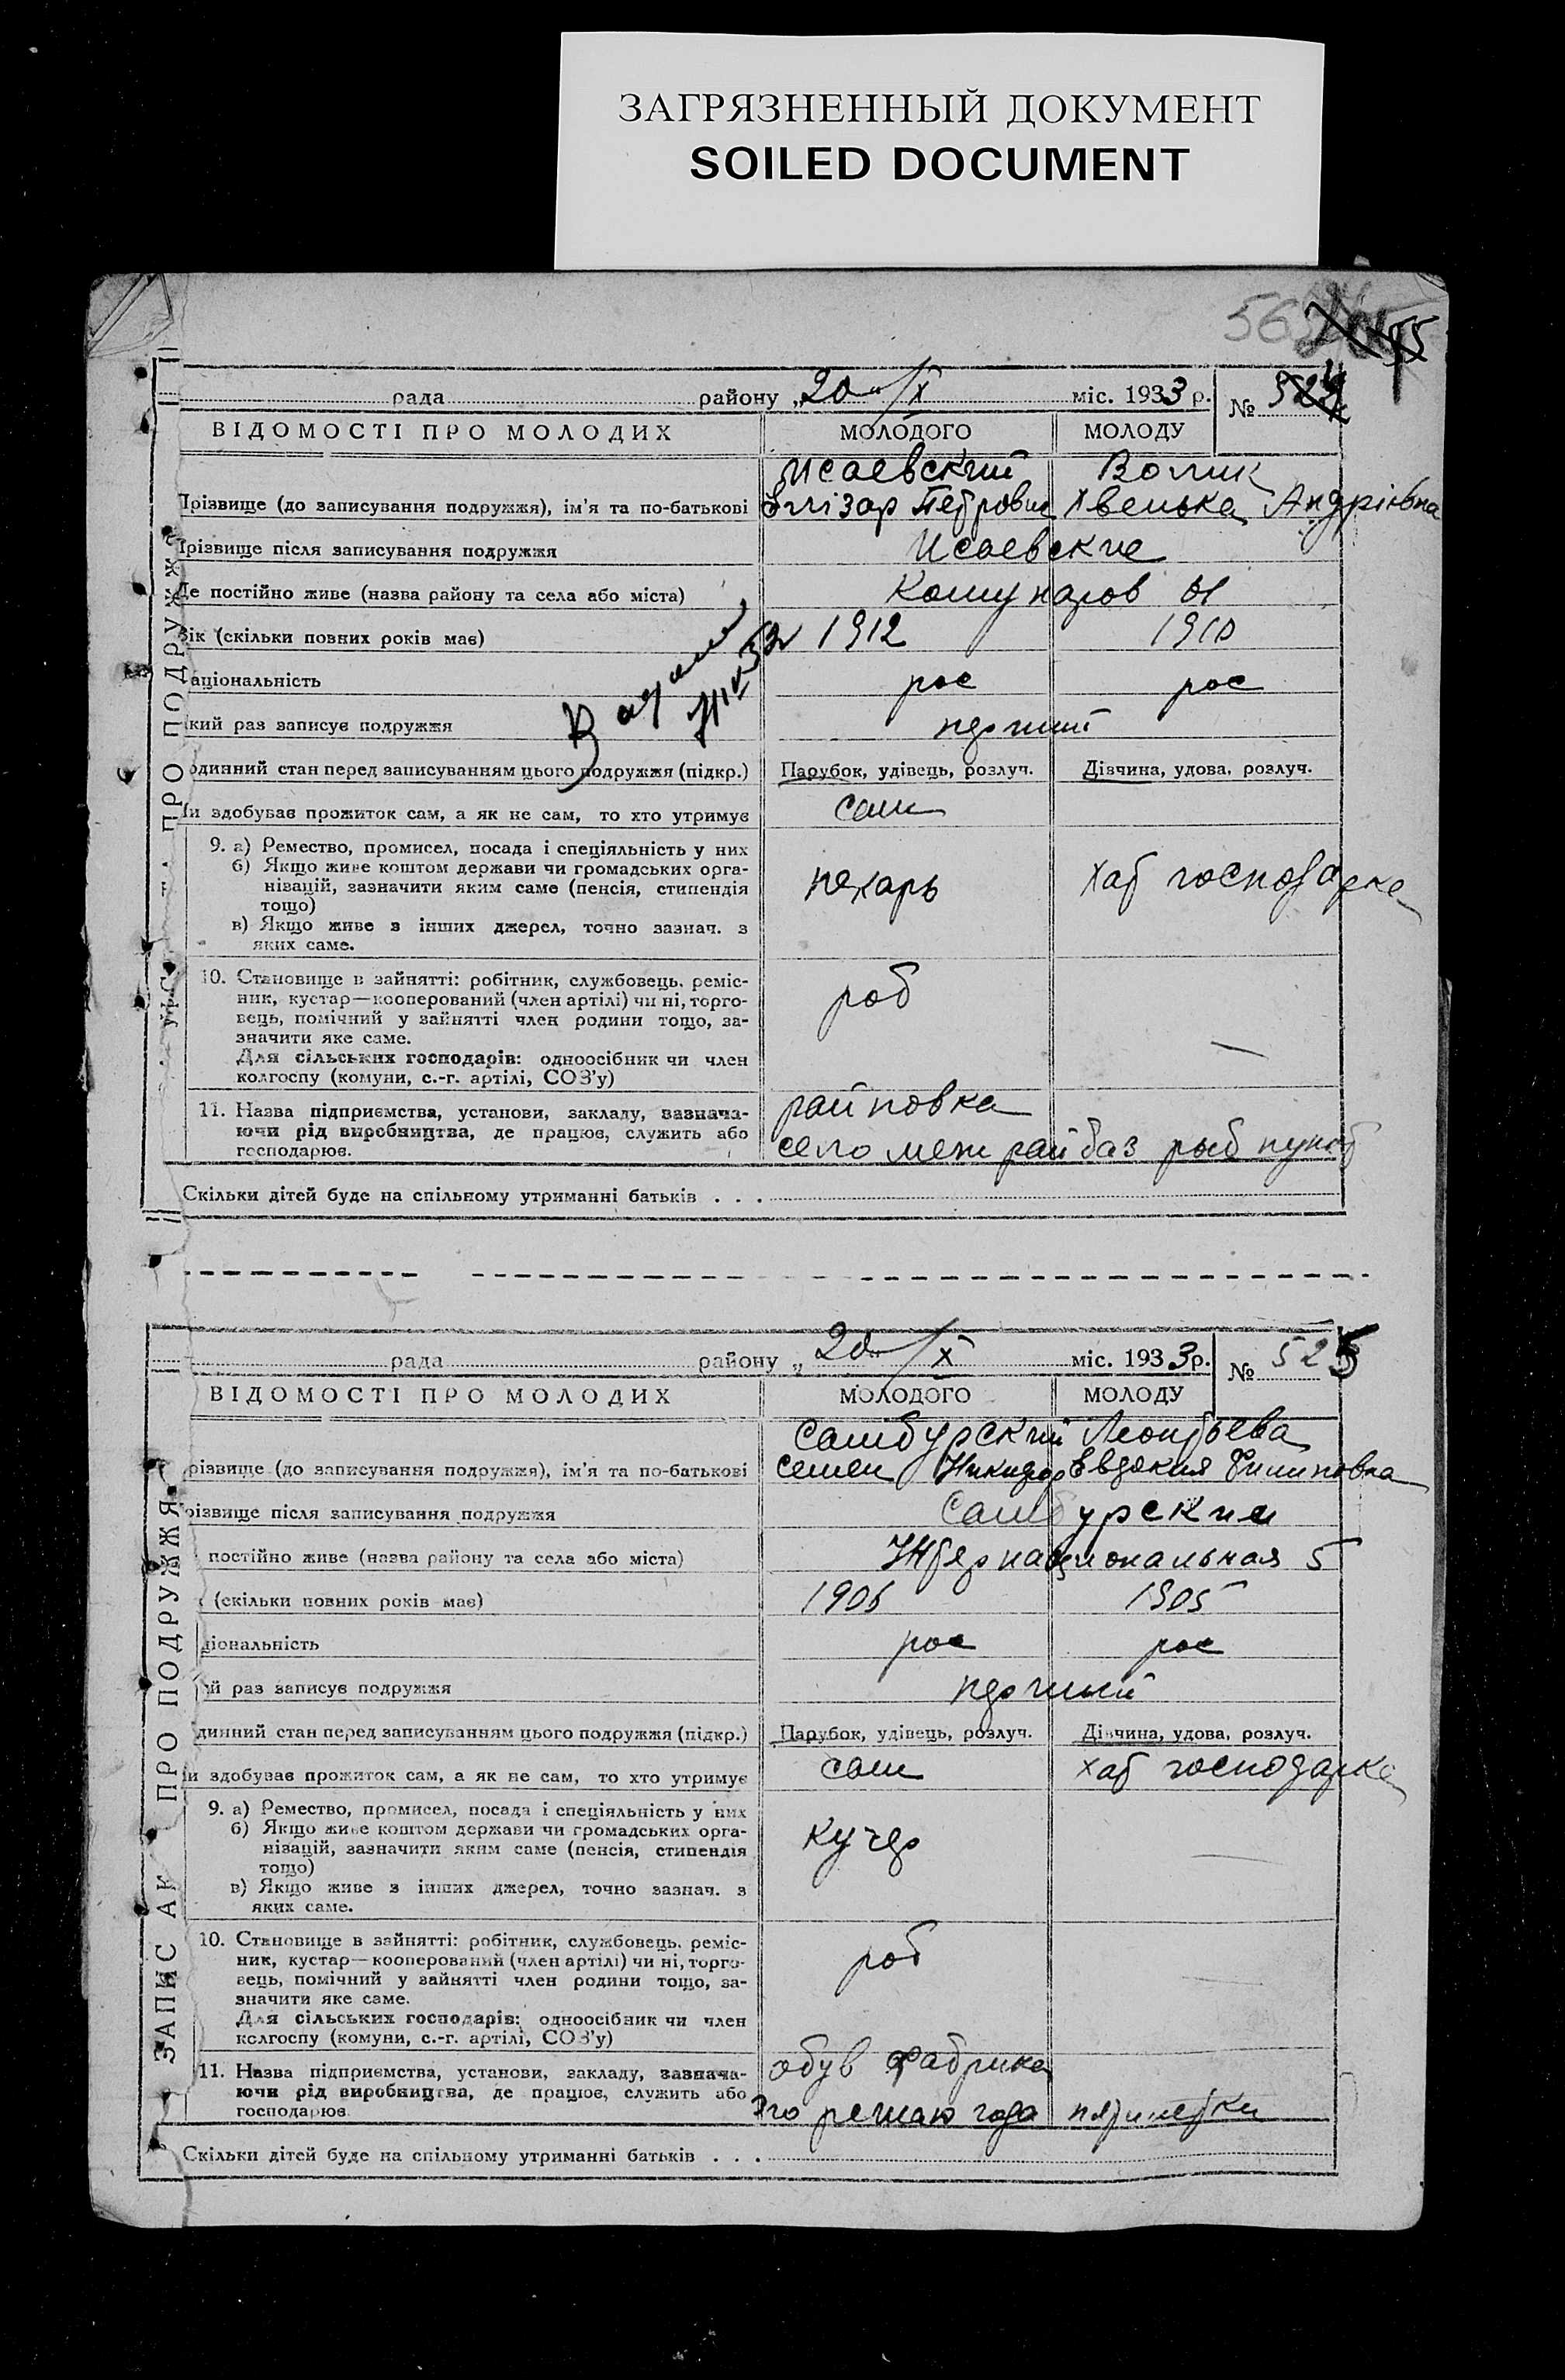 ЗАГРЯЗНЕННЫЙ ДОКУМЕНТ
SOILED DOCUMENT
рада району „20“/X міс. 1933 р. № 524
ВІДОМОСТІ ПРО МОЛОДИХ МОЛОДОГО МОЛОДУ
Исаевский Волик
Прізвище (до записування подружжя), ім'я та по-батькові Петрович Андріівна
Прізвище після записування подружжя Исаевские
Де постійно живе (назва району та села або міста) Комунаров
Вік (скільки повних років має) 1912 1910
аціональність рос рос
кий раз записує подружжя перший
одинний стан перед записуванням цього подружжя (підкр.) Парубок, удівець, розлуч. Дівчина, удова, розлуч.
и здобував прожиток сам, а як не сам, то хто утримує сам
9. а) Ремество, промисел, посада і спеціяльність у них
б) Якщо живе коштом держави чи громадських орга-
нізацій, зазначити яким саме (пенсія, стипендія
тощо)
пекарь хат господарка
в) Якщо живе з інших джерел, точно зазнач. з
яких саме.
10. Становище в зайнятті: робітник, службовець, реміс-
ник, кустар—кооперований (член артілі) чи ні, торго-
вець, помічний у зайнятті член родини тощо, за-
значити яке саме.
роб
Для сільських господарів: одноосібник чи член
колгоспу (комуни, с.-г. артілі, СОЗ'у)
11. Назва підприємства, установи, закладу, зазнача-
ючи рід виробництва, де працює, служить або
господарює.
село меж рай баз рыб пункт
Скільки дітей буде на спільному утриманні батьків . . .
ПРО ПОДРУЖЖ
рада району „20“/X міс. 1933 р. № 525
ВІДОМОСТІ ПРО МОЛОДИХ МОЛОДОГО МОЛОДУ
Самбурский Леонтьева
різвище (до записування подружжя), ім'я та по-батькові Семен Никифор Евдокия Филиповна
різвище після записування подружжя Самбурские
постійно живе (назва району та села або міста) Интернациональная 5
(скільки повних років має) 1906 1905
ціональність рос рос
ий раз записує подружжя перший
динний стан перед записуванням цього подружжя (підкр.) Парубок, удівець, розлуч. Дівчина, удова, розлуч.
и здобував прожиток сам, а як не сам, то хто утримує сам хат господарка
9. а) Ремество, промисел, посада і спеціяльність у них
б) Якщо живе коштом держави чи громадських орга-
нізацій, зазначити яким саме (пенсія, стипендія
тощо)
кучер
в) Якщо живе з інших джерел, точно зазнач. з
яких саме.
10. Становище в зайнятті: робітник, службовець, реміс-
ник, кустар—кооперований (член артілі) чи ні, торго-
вець, помічний у зайнятті член родини тощо, за-
значити яке саме.
роб
Для сільських господарів: одноосібник чи член
колгоспу (комуни, с.-г. артілі, СОЗ'у)
обув фабрика
11. Назва підприємства, установи, закладу, зазнача-
ючи рід виробництва, де працює, служить або
господарює
3го года пятилетки
Скільки дітей буде на спільному утриманні батьків . . .
ЗАПИС АК ПРО ПОДРУЖЖЯ